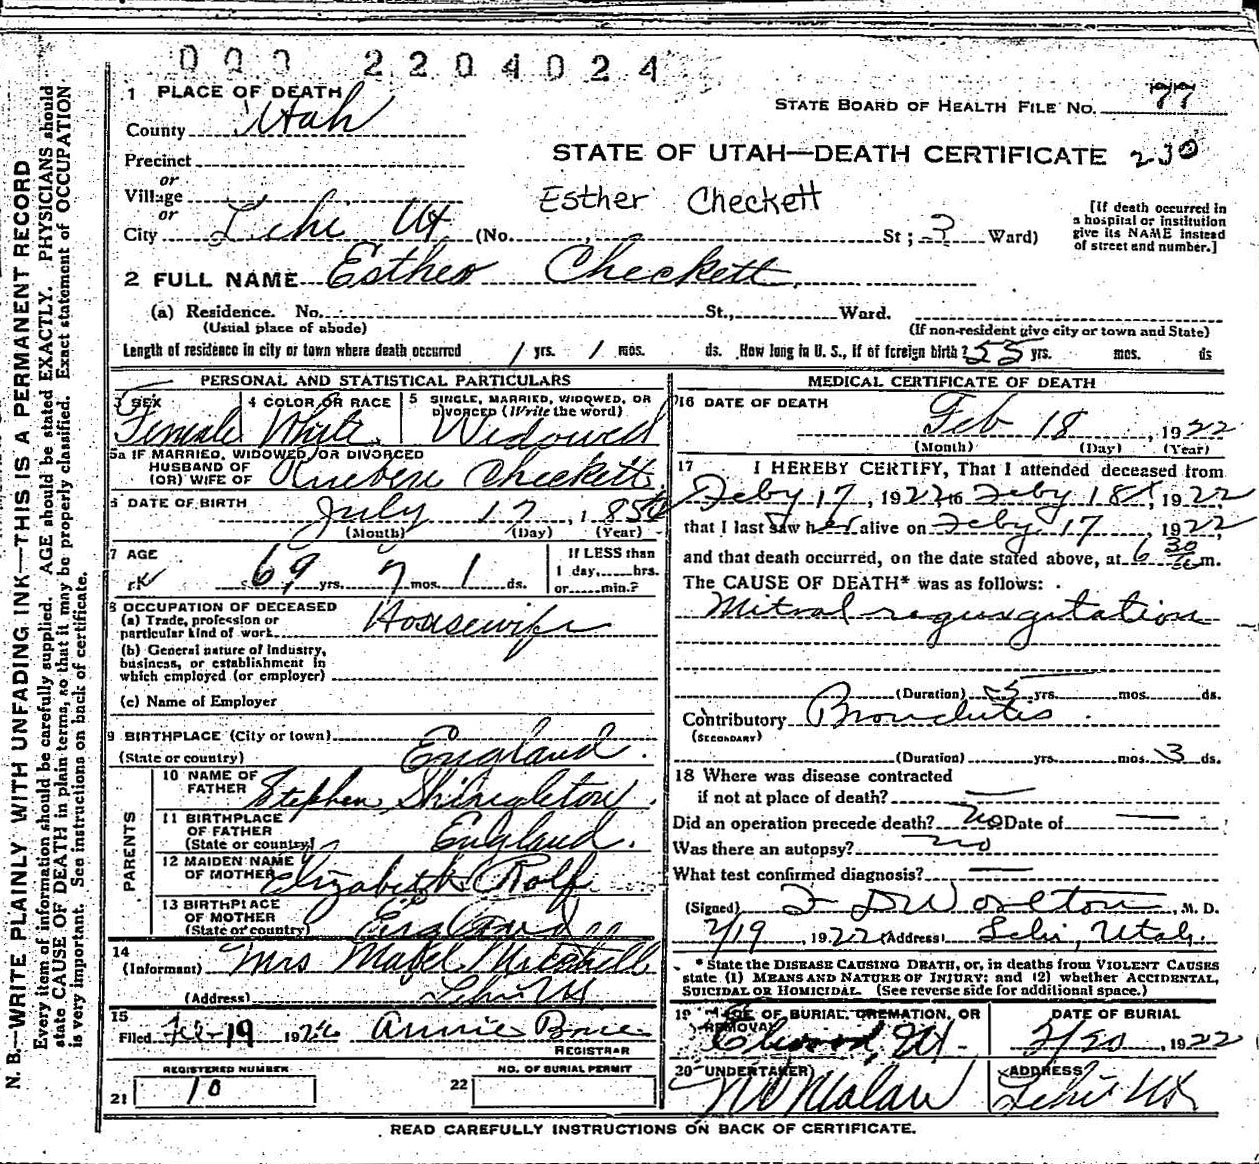 000 2204024
1 PLACE OF DEATH
STATE BOARD OF HEALTH FILE NO. 77
County Utah
STATE OF UTAH—DEATH CERTIFICATE 230
Precinct
or
Village
Esther Checkett
or
City Lehi Ut (No. St; 3 Ward)
[If death occurred in
a hospital or institution
give its NAME instead
of street and number.]
2 FULL NAME Esther Checkett
(a) Residence. No. St., Ward.
(Usual place of abode) (If non-resident give city or town and State)
Length of residence in city or town where death occurred 1 yrs. 1 mos. ds. How long in U. S., if of foreign birth? 55 yrs. mos. ds
PERSONAL AND STATISTICAL PARTICULARS
3 SEX
Female
4 COLOR OR RACE
White
5 SINGLE, MARRIED, WIDOWED, OR
DIVORCED (Write the word)
Widowed
5a IF MARRIED, WIDOWED, OR DIVORCED
HUSBAND OF
(OR) WIFE OF Checkett
6 DATE OF BIRTH July 17, 185
(Month) (Day) (Year)
7 AGE
69 yrs. 7 mos. 1 ds.
If LESS than
1 day, hrs.
or min.?
8 OCCUPATION OF DECEASED
(a) Trade, profession or
particular kind of work Housewife
(b) General nature of Industry,
business, or establishment in
which employed (or employer)
(c) Name of Employer
9 BIRTHPLACE (City or town)
(State or country) England
PARENTS
10 NAME OF
FATHER Stephen Shingleton
11 BIRTHPLACE
OF FATHER
(State or country) England
12 MAIDEN NAME
OF MOTHER Elizabeth Rolf
13 BIRTHPLACE
OF MOTHER
(State or country) England
14
(Informant) Mrs Mabel Mitchell
(Address) Lehi Ut
15
Filed Feb-19 192 Annie
REGISTRAR
REGISTERED NUMBER
21 10
NO. OF BURIAL PERMIT
22
MEDICAL CERTIFICATE OF DEATH
16 DATE OF DEATH
Feb 18, 1922
(Month) (Day) (Year)
17 I HEREBY CERTIFY, That I attended deceased from
Feby 17, 1922 to Feby 18, 1922
that I last saw her alive on Feby 17, 1922
and that death occurred, on the date stated above, at 6 30 m.
The CAUSE OF DEATH* was as follows:
Mitral regurgitation
(Duration) 5 yrs. mos. ds.
Contributory Bronchitis
(SECONDARY)
(Duration) yrs. mos. 3 ds.
18 Where was disease contracted
if not at place of death?
Did an operation precede death? No Date of
Was there an autopsy? no
What test confirmed diagnosis?
(Signed) Worlton, M. D.
2/19, 1922 (Address) Lehi, Utah.
* State the DISEASE CAUSING DEATH, or, in deaths from VIOLENT CAUSES
state (1) MEANS AND NATURE OF INJURY; and (2) whether ACCIDENTAL,
SUICIDAL OR HOMICIDAL. (See reverse side for additional space.)
19 PLACE OF BURIAL, CREMATION, OR
REMOVAL
Elwood, Ut.
DATE OF BURIAL
2/20, 1922
20 UNDERTAKER
Malan
ADDRESS
Lehi Ut
READ CAREFULLY INSTRUCTIONS ON BACK OF CERTIFICATE.
N. B.—WRITE PLAINLY WITH UNFADING INK—THIS IS A PERMANENT RECORD
Every item of information should be carefully supplied. AGE should be stated EXACTLY. PHYSICIANS should
state CAUSE OF DEATH in plain terms, so that it may be properly classified. Exact statement of OCCUPATION
is very important. See instructions on back of certificate.